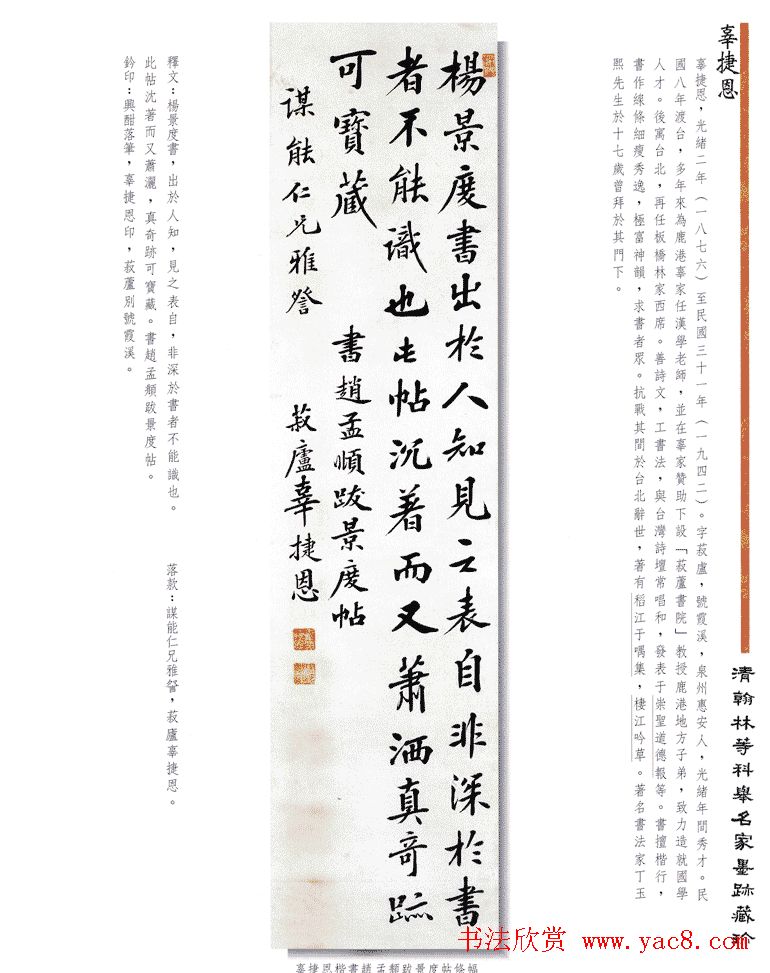 辜捷恩
辜捷恩，光緒二年（一八七六）至民國三十一年（一九四二）。字菽盧，號霞溪，泉州惠安人，光緒年間秀才。民
國八年渡台，多年來為鹿港辜家任漢學老師，並在辜家贊助下設「菽蘆書院」教授鹿港地方子弟，致力造就國學
人才。後寓台北，再任板橋林家西席。善詩文，工書法，與台灣詩壇常唱和，發表于崇聖道德報等。書擅楷行，
書作線條細瘦秀逸，極富神韻，求書者眾。抗戰其間於台北辭世，著有稻江于喁集，棲江吟草。著名書法家丁玉
熙先生於十七歲曾拜於其門下。
清翰林等科舉名家墨跡藏珍
楊景度書出於人知見之表自非深於書
者不能識也此帖沉著而又蕭洒真奇跡
可寶藏
書趙孟頫跋景度帖
謀能仁兄雅詧
菽廬辜捷恩
釋文：楊景度書，出於人知，見之表自，非深於書者不能識也。
此帖沈著而又蕭灑，真奇跡可寶藏。書趙孟頫跋景度帖。
鈐印：興酣落筆，辜捷恩印，菽蘆別號霞溪。
落款：謀能仁兄雅詧，菽廬辜捷恩。
辜捷恩楷書趙孟頫跋景度帖條幅
书法欣赏 www.yac8.com